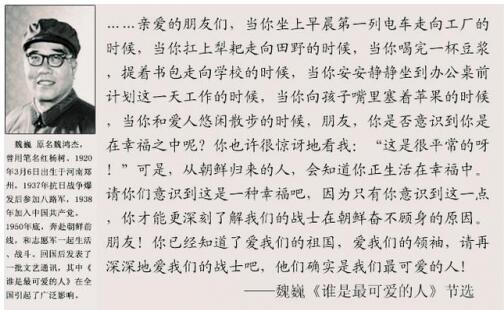 魏巍 原名魏鸿杰,
曾用笔名红杨树。1920
年3月6日出生于河南郑
州。1937年抗日战争爆
发后参加八路军,1938
年加入中国共产党。
1950年底,奔赴朝鲜前
线,和志愿军一起生活
、战斗。回国后发表了
一批文艺通讯,其中《
谁是最可爱的人》在全
国引起了广泛影响。
……亲爱的朋友们,当你坐上早晨第一列电车走向工厂的
时候,当你扛上犁耙走向田野的时候,当你喝完一杯豆浆
,提着书包走向学校的时候,当你安安静静坐到办公桌前
计划这一天工作的时候,当你向孩子嘴里塞着苹果的时候
,当你和爱人悠闲散步的时候,朋友,你是否意识到你是
在幸福之中呢?你也许很惊讶地看我:“这是很平常的呀
!”可是,从朝鲜归来的人,会知道你正生活在幸福中。
请你们意识到这是一种幸福吧,因为只有你意识到这一点
,你才能更深刻了解我们的战士在朝鲜奋不顾身的原因。
朋友!你已经知道了爱我们的祖国,爱我们的领袖,请再
深深地爱我们的战士吧,他们确实是我们最可爱的人!
——魏巍《谁是最可爱的人》节选